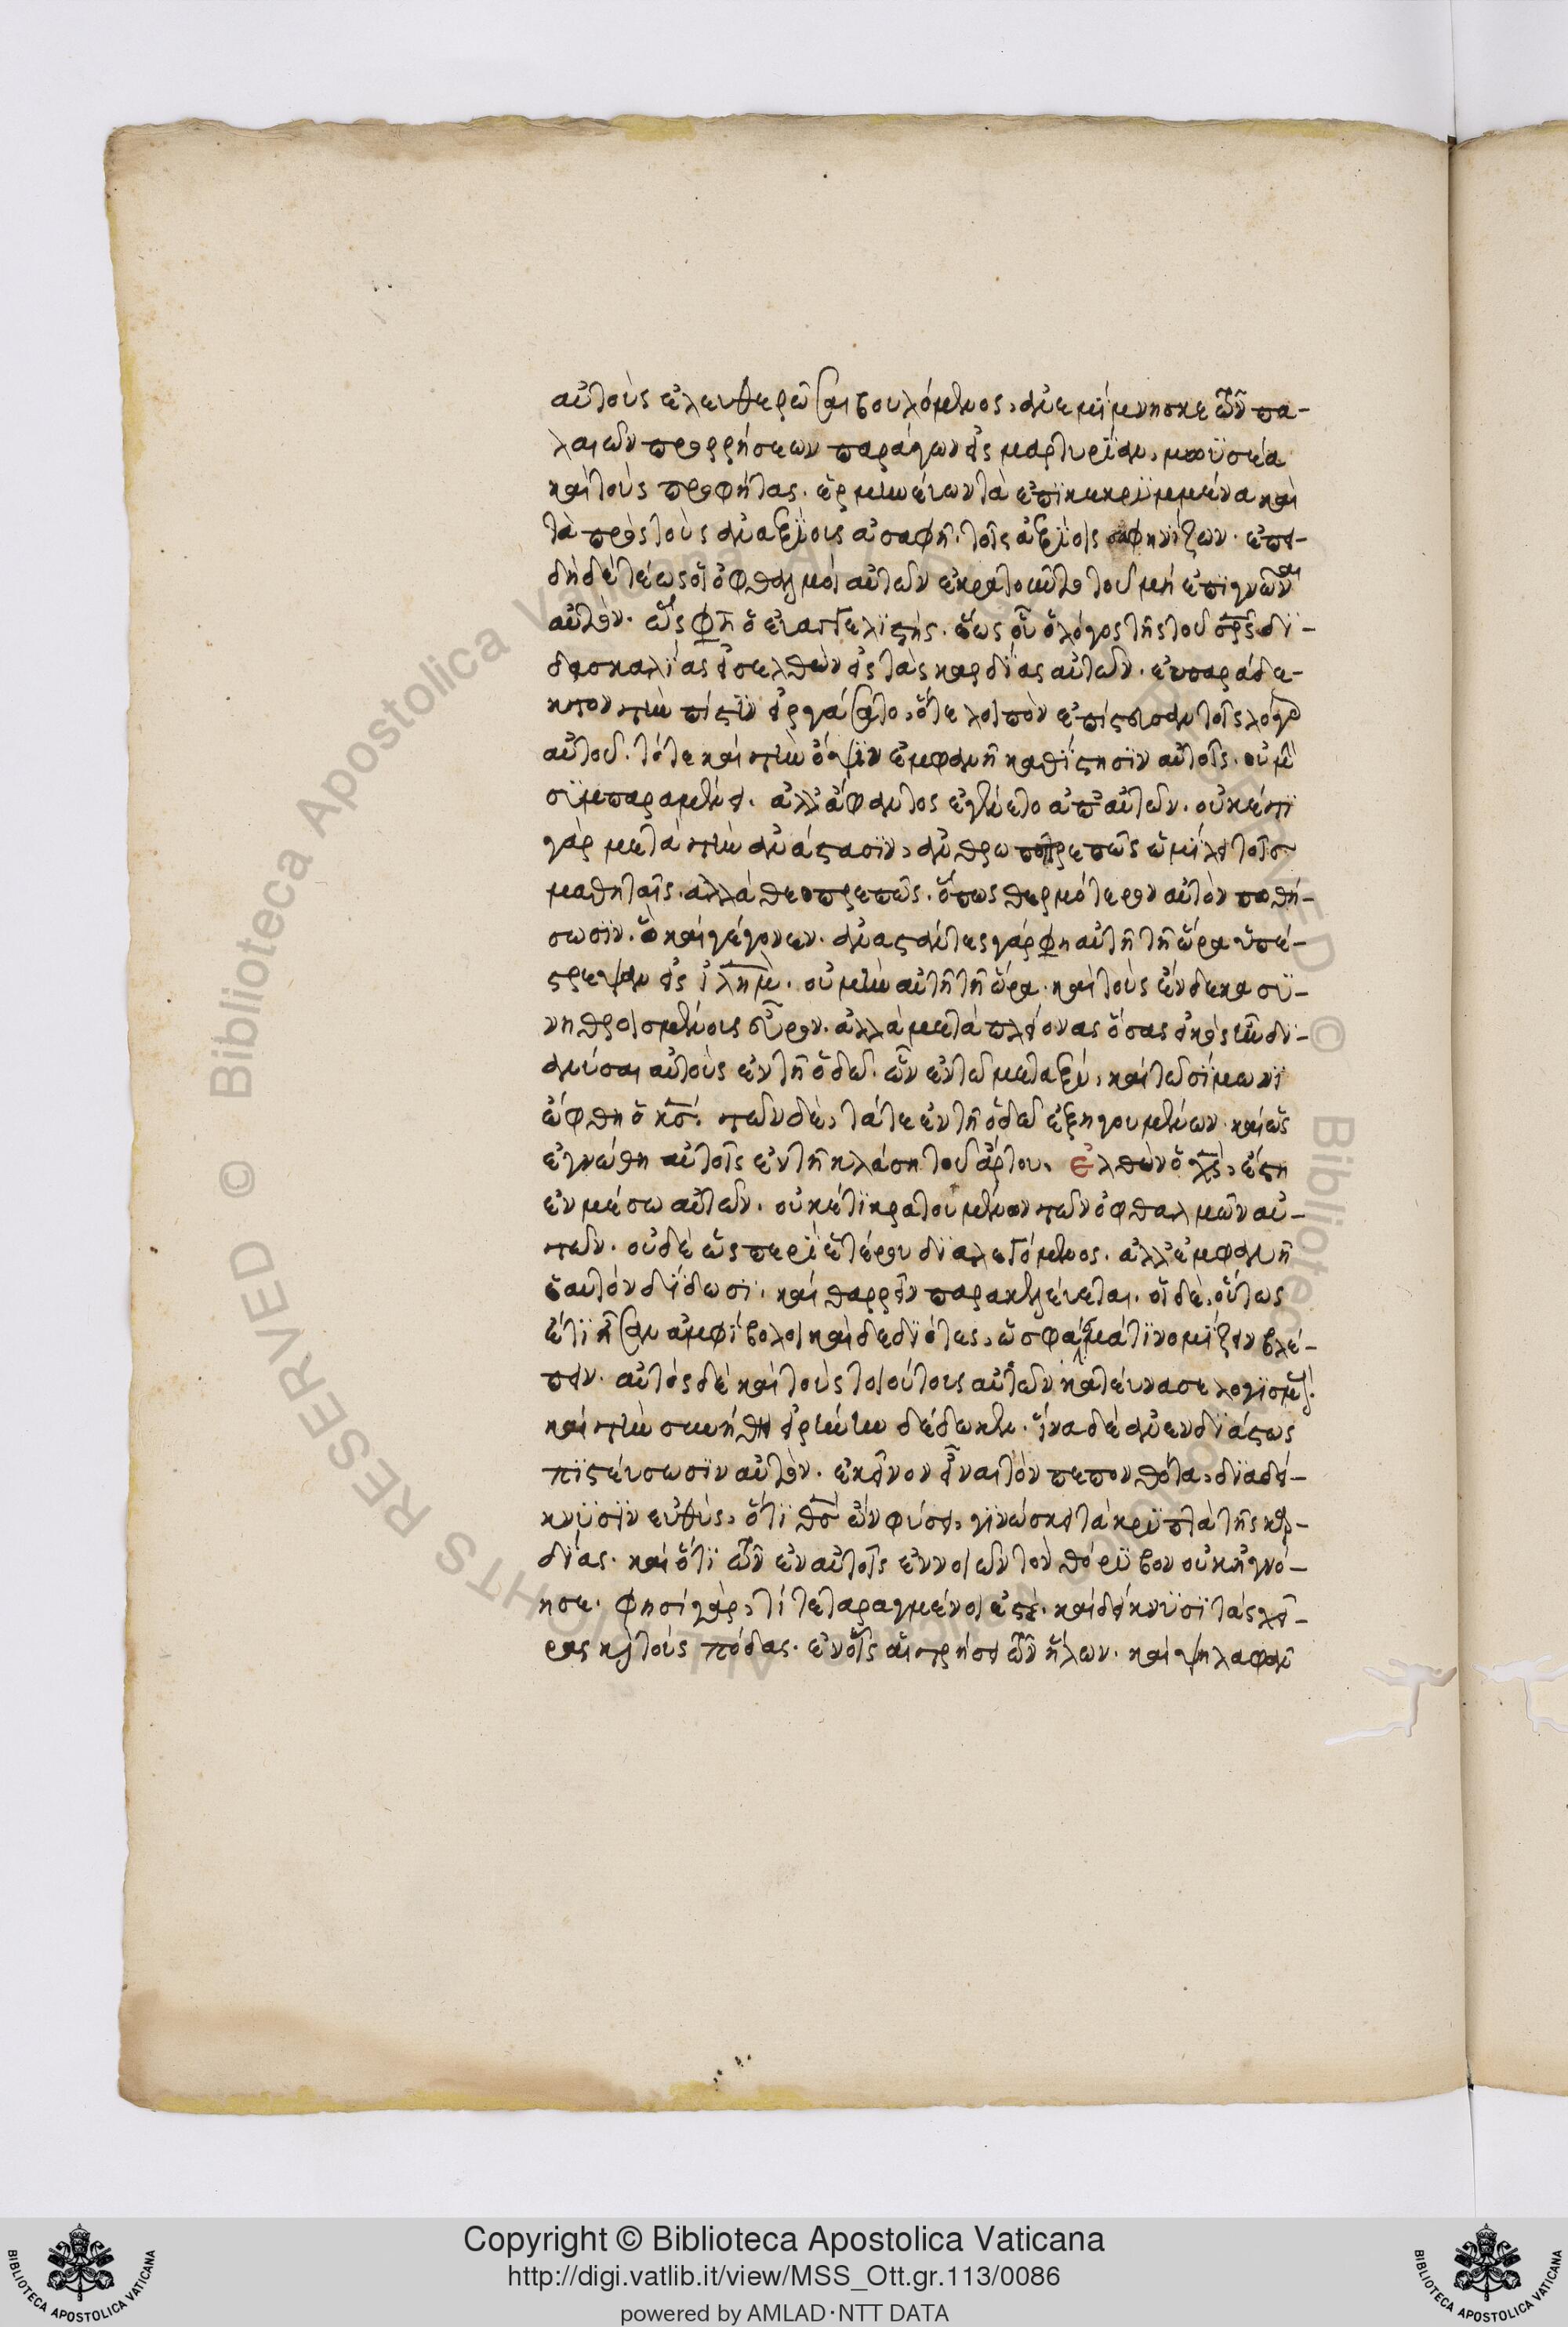 αὐτοὺς ἐλευθερῶσαι βουλόμενος, ἀνεμίμνησκε τῶν πα-
λαιῶν προρρήσεων παράγων εἰς μαρτυρίαν, μωϋσέα
καὶ τοὺς προφήτας. ἑρμηνεύων τὰ ἐπικεκρυμμένα καὶ
τὰ πρὸς τοὺς ἀναξίους ἀσαφῆ. τοῖς ἀξίοις σαφηνίζων. ἐπει-
δὴ δὲ τέως οἱ ὀφθαλμοὶ αὐτῶν ἐκρατοῦντο τοῦ μὴ ἐπιγνῶναι
αὐτὸν. ὥς φη ὁ εὐαγγελιστής. ἕως οὗ ὁ λόγος τῆς τοῦ σρς δι-
δασκαλίας εἰσελθὼν εἰς τὰς καρδίας αὐτῶν. εὐπαράδε-
κτον τὴν πίστιν εἰργάσατο, ὅτε λοιπὸν ἐπίστευσαν τοῖς λόγοις
αὐτοῦ. τότε καὶ τὴν ὄψιν ἐμφανῆ καθίστησιν αὐτοῖς. οὐ μὴν
συμπαραμένει. ἀλλ' ἄφαντος ἐγένετο ἀπ' αὐτῶν. οὐκέτι
γὰρ μετὰ τὴν ἀνάστασιν, ἀνθρωποπρεπῶς ὡμίλει τοῖς
μαθηταῖς. ἀλλὰ θεοπρεπῶς. ὅπως θερμότερον αὐτὸν ποθή-
σωσιν. ὃ καὶ γέγονεν. ἀναστάντες γάρ φη αὐτῆ τῆ ὥρα ὑπέ-
στρεψαν εἰς ιλημ. οὐ μὴν αὐτῆ τῆ ὥρα. καὶ τοὺς ἕνδεκα συ-
νηθροισμένους εὗρον. ἀλλὰ μετὰ πλείονας ὅσας εἰκὸς ἦν δι-
ανύσαι αὐτοὺς ἐν τῆ ὁδῶ. ὧν ἐν τῶ μεταξύ, καὶ τῶ σίμωνι
ὤφθη ὁ κς. τῶν δὲ, τά τε ἐν τῆ ὁδῶ ἐξηγουμένων. καὶ ὡς
ἐγνώθη αὐτοῖς ἐν τῆ κλάση τοῦ ἄρτου. ἐλθὼν ὁ χς, ἔστη
ἐν μέσω αὐτῶν. οὐκέτι κρατουμένων τῶν ὀφθαλμῶν αὐ-
τῶν. οὐδὲ ὡς περὶ ἑτέρου διαλεγόμενος. ἀλλ' ἐμφανῆ
ἑαυτὸν δίδωσι. καὶ θαρρεῖν παρακελεύεται. οἱ δὲ, οὕτως
ἔτι ἦσαν ἀμφίβολοι καὶ δεδιότες, ὡς φάσμα τι νομίζειν βλέ-
πειν. αὐτὸς δὲ καὶ τοὺς τοιούτους αὐτῶν κατεύνασε λογισμούς.
καὶ τὴν συνήθη εἰρήνην δέδωκεν. ἵνα δὲ ἀνενδιάστως
πιστεύσωσιν αὐτὸν. ἐκεῖνον εἶναι τὸν πεπονθότα, διαδεί-
κνυσιν εὐθὺς, ὅτι θς ὢν φύσει, γινώσκει τὰ κρυπτὰ τῆς καρ-
δίας. καὶ ὅτι τῶν ἐν αὐτοῖς ἐννοιῶν τὸν θόρυβον οὐκ ἠγνό-
ησε. φησὶ γὰρ, τί τεταραγμένοι ἐστέ. καὶ δείκνυσι τὰς χεῖ-
ρας καὶ τοὺς πόδας. ἐν οἷς αἱ τρήσει τῶν ἥλων. καὶ ψηλαφᾶν
Copyright © Biblioteca Apostolica Vaticana
http://digi.vatlib.it/view/MSS_Ott.gr.113/0086
powered by AMLAD·NTT DATA